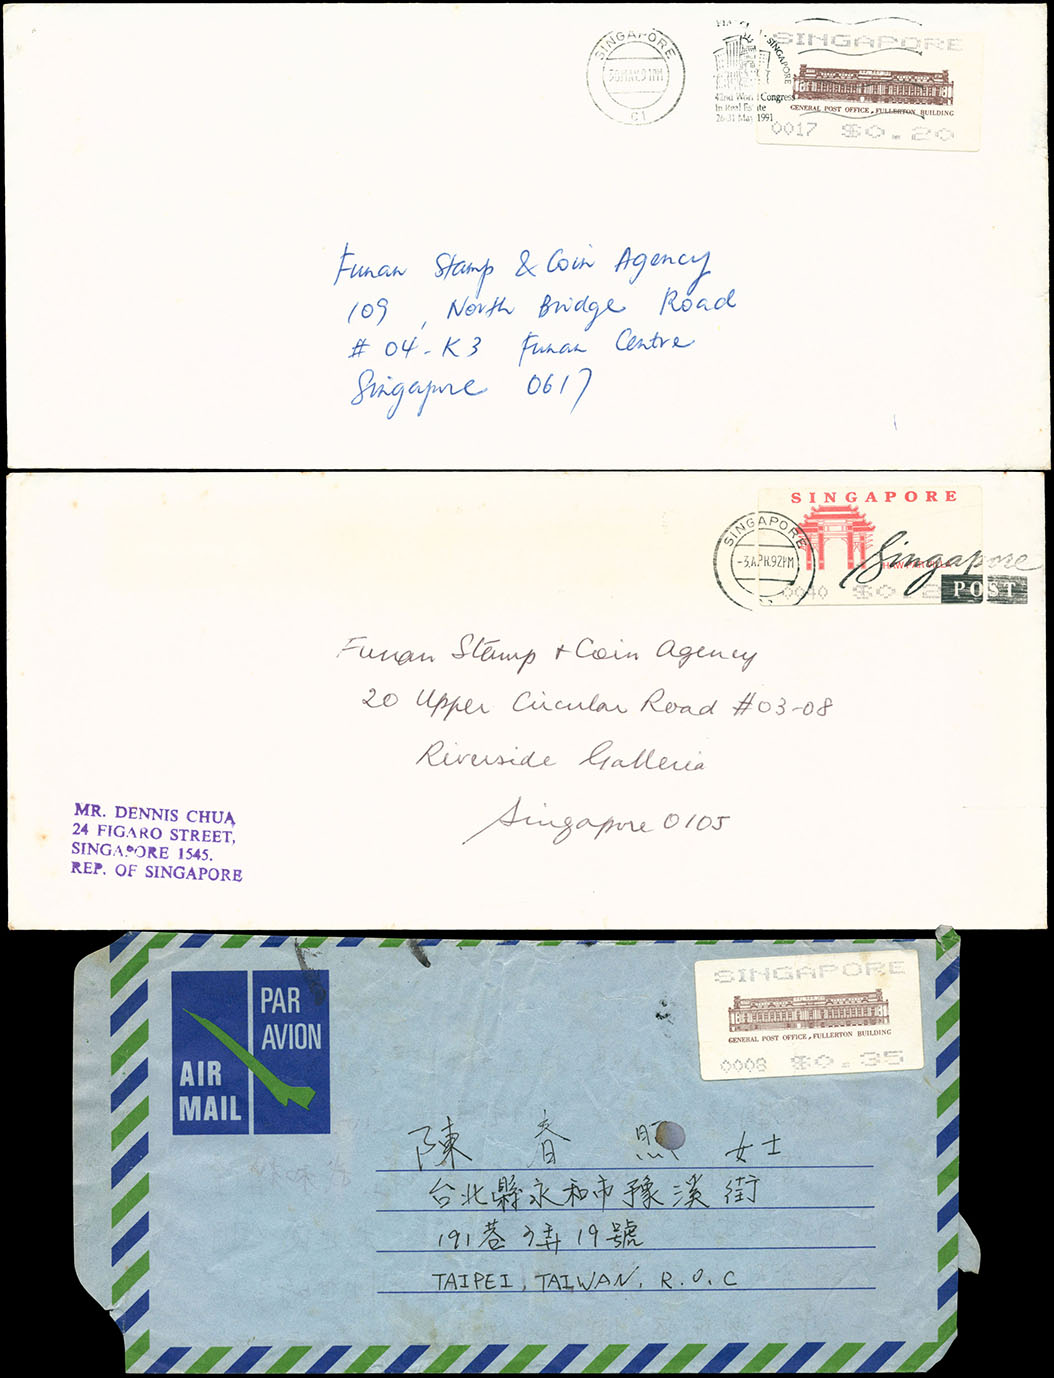 SINGAPORE
C1
SINGAPORE
42nd World Congress
In Real Estate
26-31 May 1991
SINGAPORE
GENERAL POST OFFICE, FULLERTON BUILDING
0017 $0.20
Funan Stamp & Coin Agency
109, North Bridge Road
# 04-K3 Funan Centre
Singapore 0617
SINGAPORE
SINGAPORE
-3.APR.92PM
Singapore
POST
0040 $0.2
Funan Stamp + Coin Agency
20 Upper Circular Road #03-08
Riverside Galleria
Singapore 0105
MR. DENNIS CHUA
24 FIGARO STREET,
SINGAPORE 1545.
REP. OF SINGAPORE
PAR
AVION
AIR
MAIL
SINGAPORE
GENERAL POST OFFICE, FULLERTON BUILDING
0008 $0.35
陳春照女士
台北縣永和市豫溪街
191巷3弄19號
TAIPEI, TAIWAN, R.O.C